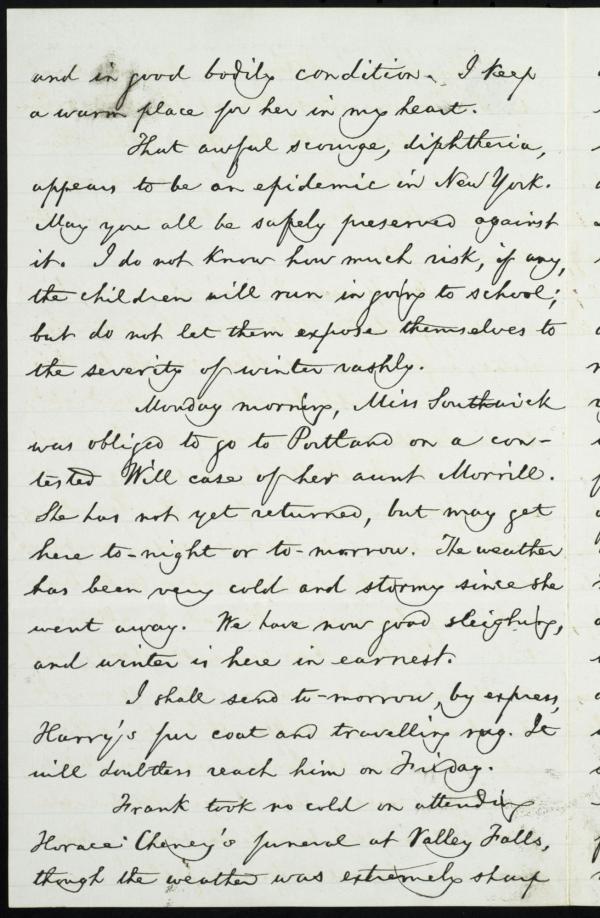 and in good bodily condition. I keep
a warm place for her in my heart.
That awful scourge, diphtheria,
appears to be an epidemic in New York.
May you all be safely preserved against
it. I do not know how much risk, if any,
the children will run in going to school;
but do not let them expose themselves to
the severity of winter rashly.
Monday morning, Miss Southwick
was obliged to go to Portland on a con-
tested Will case of her aunt Morrill.
She has not yet returned, but may get
here to-night or to-morrow. The weather
has been very cold and stormy since she
went away. We have now good sleighing,
and winter is here in earnest.
I shall send to-morrow, by express,
Harry's fur coat and travelling rug. It
will doubtless reach him on Friday.
Frank took no cold on attending
Horace Cheney's funeral at Valley Falls,
though the weather was extremely sharp